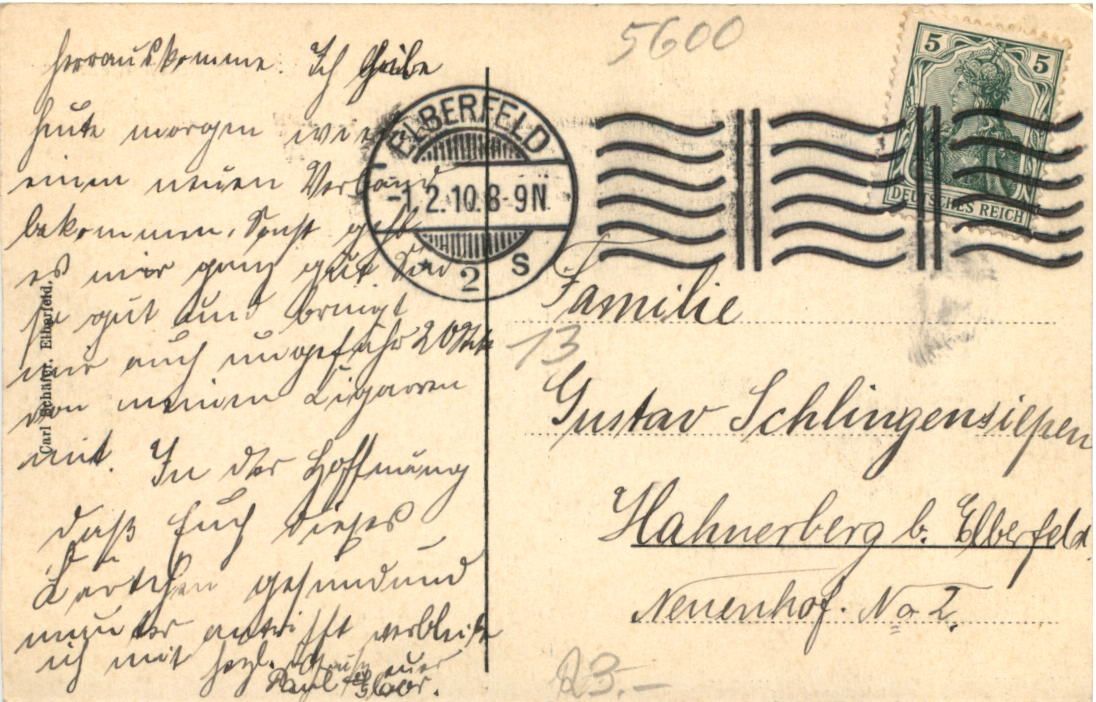 herauskomme. Ich habe
heute morgen wieder
einen neuen Verband
bekommen. Sonst geht
es mir ganz gut. Sind
so gut und bringt
mir auch ungefähr 20 Stck
von meinen Zigarren
mit. In der Hoffnung
daß Euch dieses
Kärtchen gesund und
munter antrifft verbleibe
ich mit herzl. Gruß euer
Paul
Carl Schäfer, Elberfeld,
5600
ELBERFELD
-1.2.10.8-9N.
* 2 s
5 5
DEUTSCHES REICH
Familie
13
Gustav Schlingensiepen
Hahnerberg b. Elberfeld
Neuenhof. No 2.
23.-